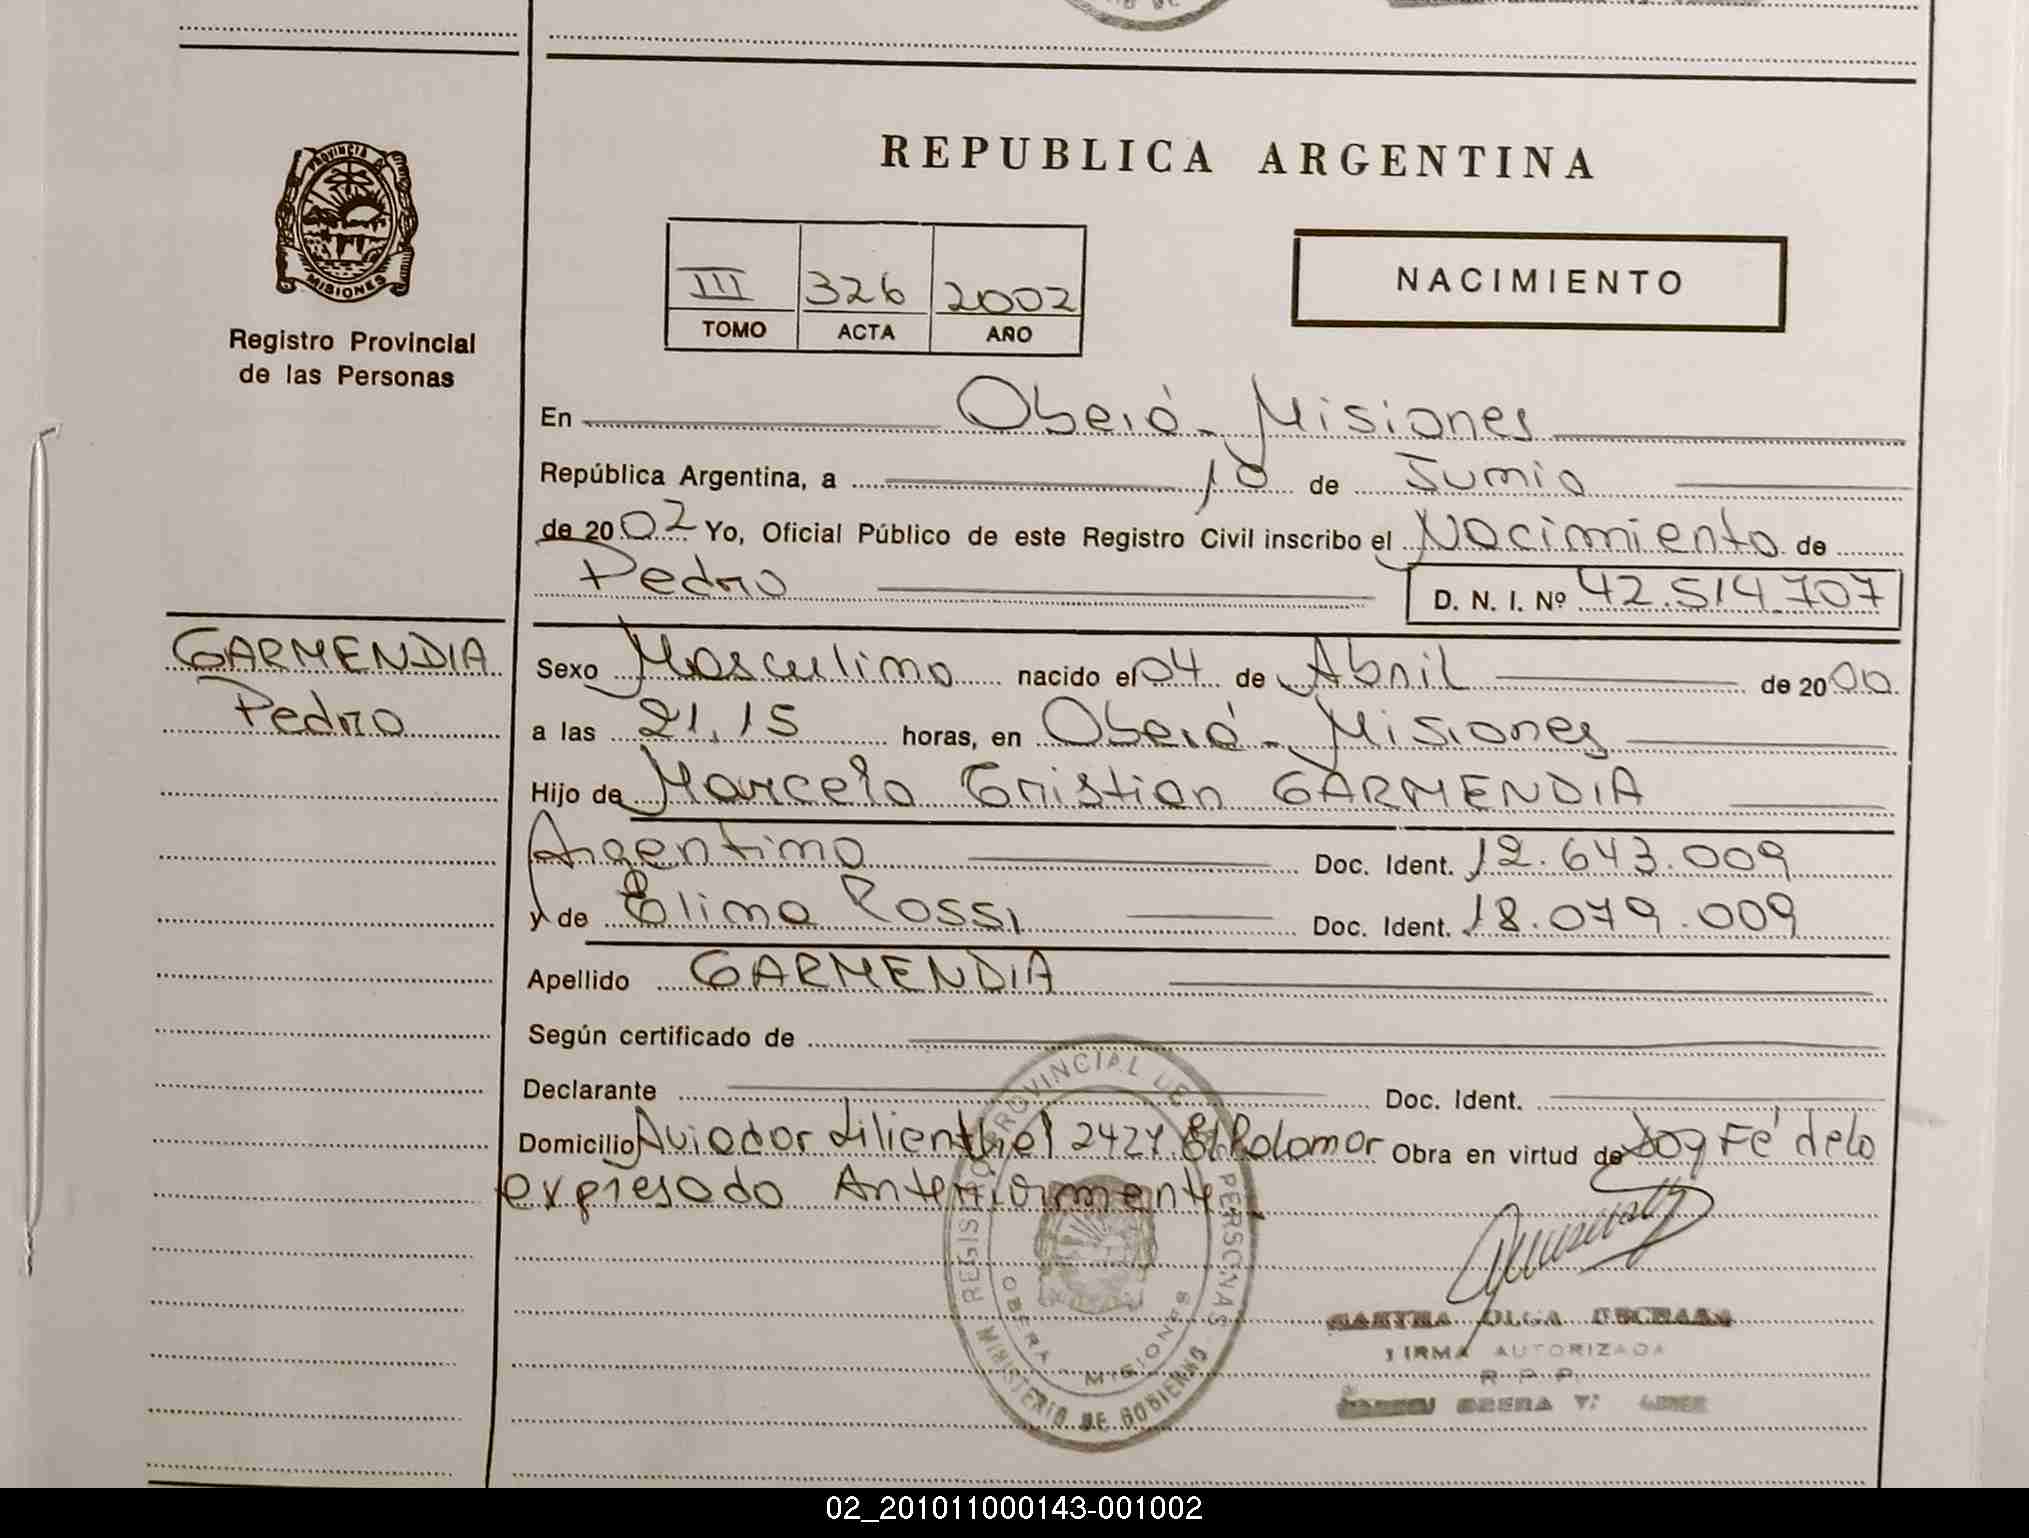 REPUBLICA ARGENTINA
PROVINCIA D
MISIONES
Registro Provincial
de las Personas
III 326 2002
TOMO ACTA AÑO
NACIMIENTO
En Oberá - Misiones
República Argentina, a 10 de Junio
de 2002 Yo, Oficial Público de este Registro Civil inscribo el Nacimiento de
Pedro D. N. I. Nº 42.514.707
GARMENDIA
Pedro
Sexo Masculino nacido el 04 de Abril de 2000
a las 21,15 horas, en Oberá - Misiones
Hijo de Marcelo Cristian GARMENDIA
Argentino Doc. Ident. 12.643.009
y de Elina Rossi Doc. Ident. 18.079.009
Apellido GARMENDIA
Según certificado de
Declarante Doc. Ident.
Domicilio Aviador Lilienthel 2427 El Palomar Obra en virtud de Doy Fé de lo
expresado Anteriormente.
REGISTRO PROVINCIAL DE PERSONAS
OBERA MISIONES
MINISTERIO DE GOBIERNO
OLGA
FIRMA AUTORIZADA
R. P. P.
OBERA
02_201011000143-001002